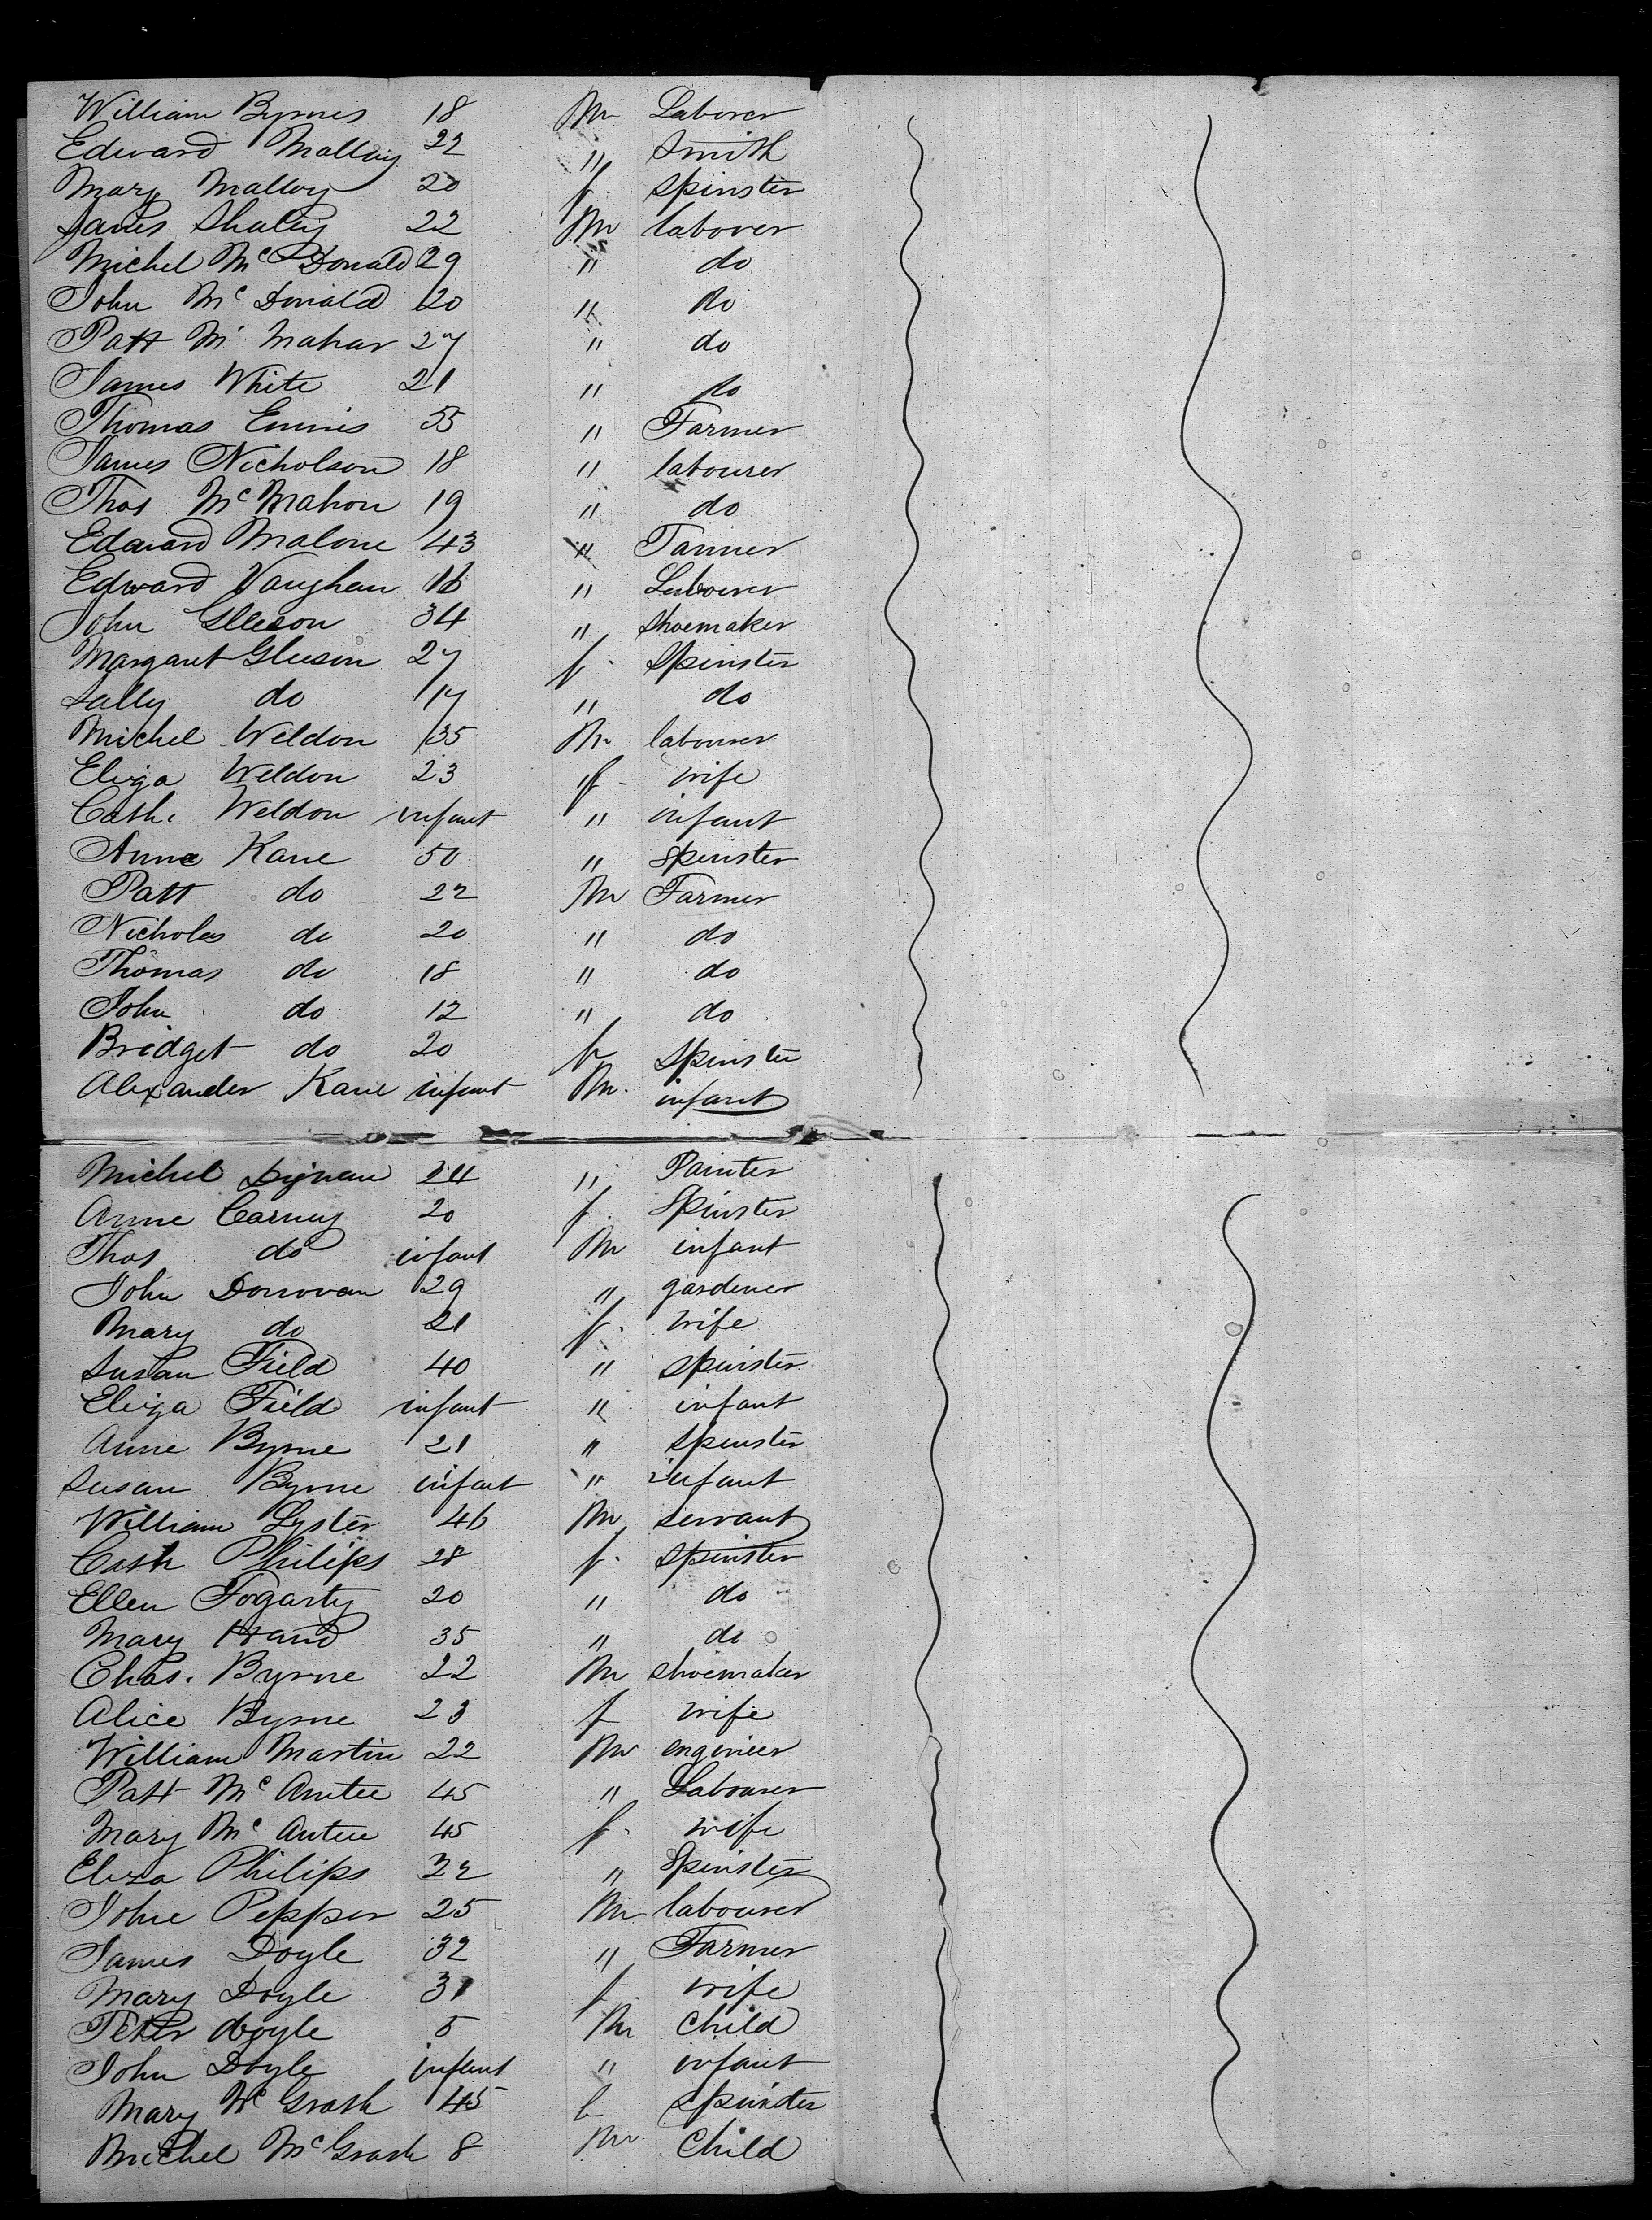 William Byrnes 18 M Laborer
Edward Malloy 22 " Smith
Mary Malloy 20 f. Spinster
James 22 M laborer
Michel Mc Donald 29 " do
John Mc Donald 20 " Do
Patt Mc Mahar 27 " do
James White 21 " do
Thomas Ennis 55 " Farmer
James Nicholson 18 " labourer
Thos Mc Mahon 19 " do
Edward Malone 43 " Tanner
Edward Vaughan 16 " Labourer
John Gleeson 34 " Shoemaker
Margaret Gleeson 27 f. Spinster
Sally do 17 " do
Michel Weldon 35 M. labourer
Eliza Weldon 23 f wife
Cath. Weldon infant " infant
Anne Kane 50 " Spinster
Patt do 22 M Farmer
Nicholas do 20 " do
Thomas do 18 " do
John do 12 " do
Bridget do 20 f Spinster
Alexander Kane infant M. infant
Michel Dignan 24 " Painter
Anne Carney 20 f. Spinster
Thos do infant M infant
John Donovan 29 " gardener
Mary do 21 f. wife
Susan Field 40 " spinster
Eliza Field infant " infant
Anne Byrne 21 " spinster
Susan Byrne infant " infant
William Lyster 46 M servant
Cath Philips 28 f. spinster
Ellen Fogarty 20 " do
Mary Hand 35 " do
Chas. Byrne 22 M shoemaker
Alice Byrne 23 f wife
William Martin 22 M engineer
Patt Mc Antee 45 " Labourer
Mary Mc Antee 45 f. wife
Eliza Philips 32 " Spinster
John Pepper 25 M labourer
James Doyle 32 " Farmer
Mary Doyle 31 f wife
Peter doyle 5 M Child
John Doyle infant " infant
Mary Mc Grath 45 f spinster
Michel Mc Grath 8 M Child